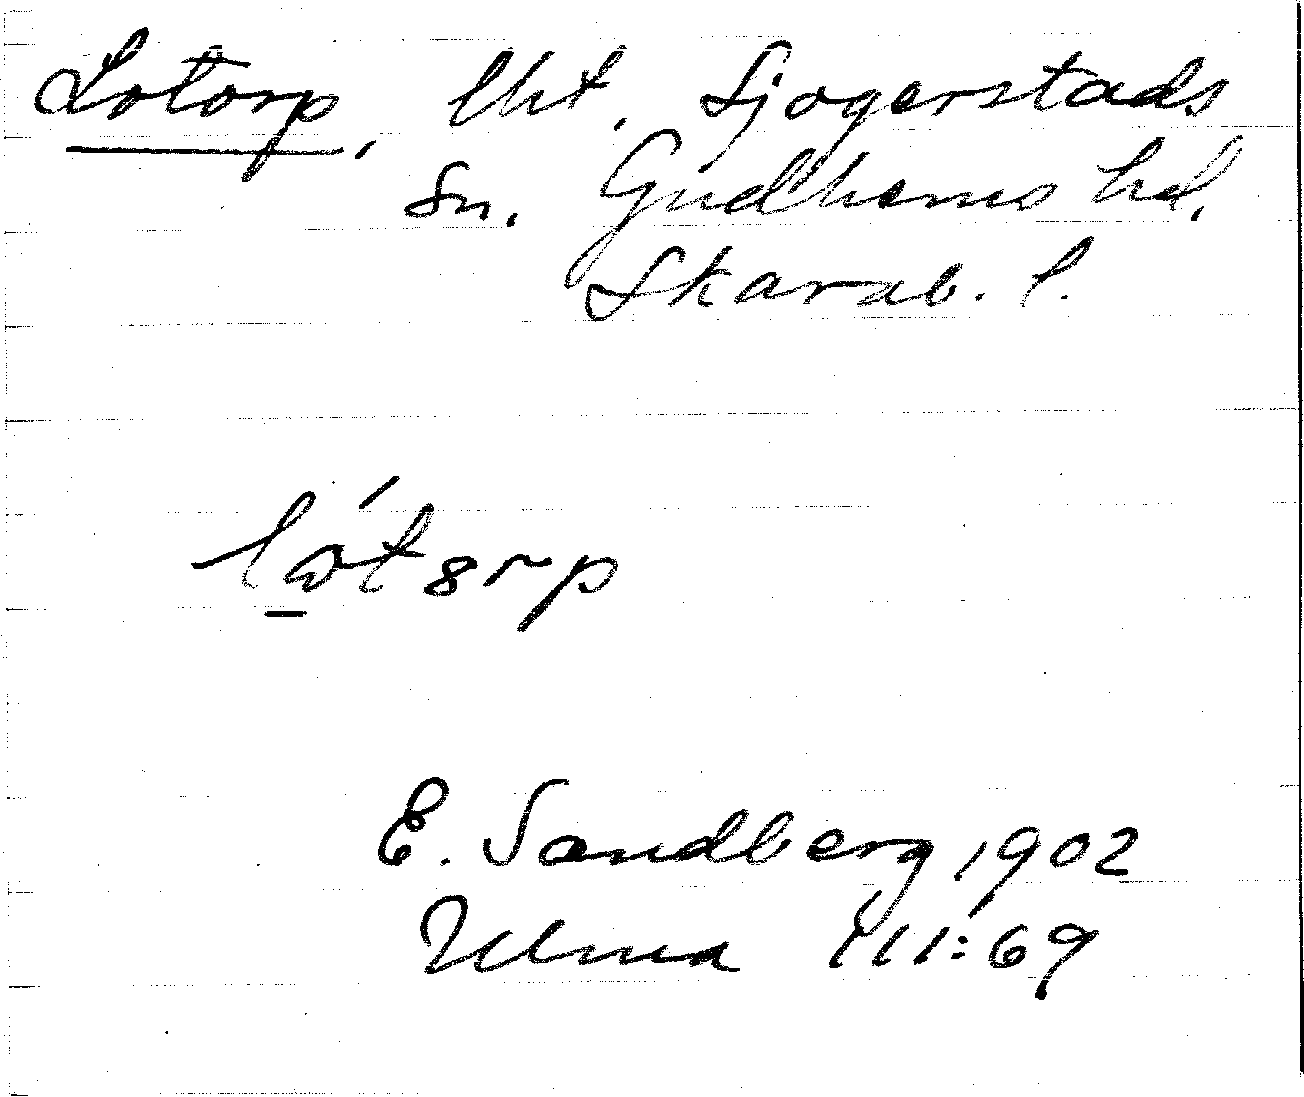 Lotorp, lht. Sjogerstads
Sn. Gudhems hd.
Skarab. l.
E. Sandberg 1902
Ulma 111:69